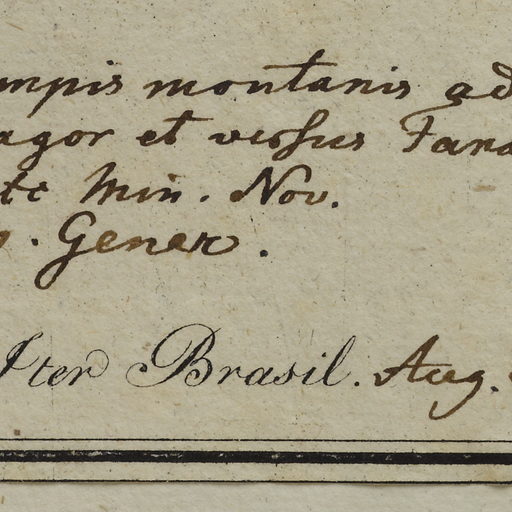 ampis montanis ad
agor et versus Tana
te Min. Nov.
. Gener.
Iter Brasil. Aug.